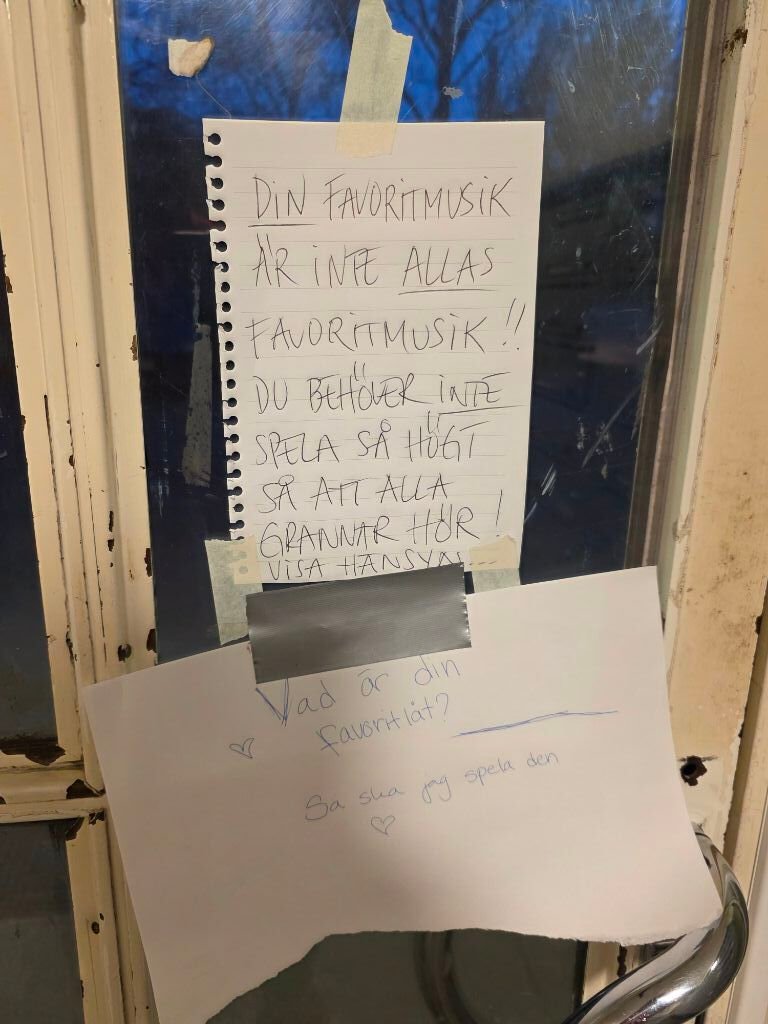 DIN FAVORITMUSIK
ÄR INTE ALLAS
FAVORITMUSIK!!
DU BEHÖVER INTE
SPELA SÅ HÖGT
SÅ ATT ALLA
GRANNAR HÖR!
VISA HÄNSYN...
Vad är din
favoritlåt?
Så ska jag spela den